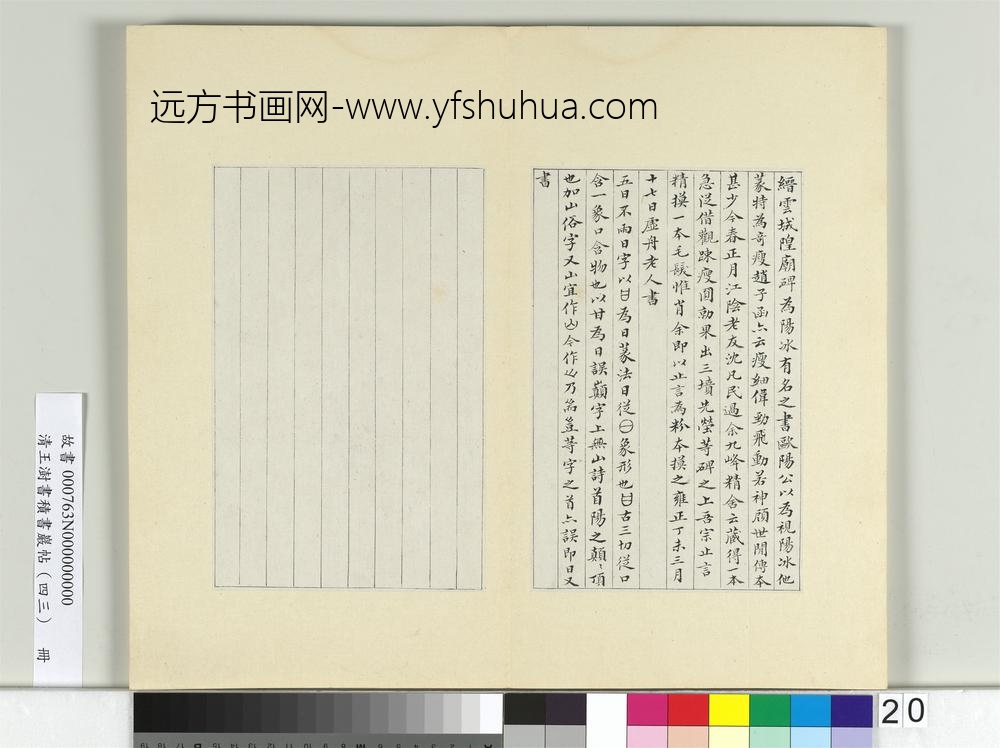 远方书画网-www.yfshuhua.com
縉雲城隍廟碑為陽冰有名之書歐陽公以為視陽冰他
篆特為奇瘦趙子函亦云瘦細偉勁飛動若神顧世閒傳本
甚少今春正月江陰老友沈凡民過余九峰精舍云藏得一本
急從借觀踈瘦圓勁果出三墳先塋等碑之上吾宗止言
精摸一本毛髮惟肖余即以止言為粉本摸之雍正丁未三月
十七日虛舟老人書
五日不雨日字以日為日篆法日從㊀象形也曰古三切從口
含一象口含物也以甘為日誤巔字上無山詩首陽之顛顛頂
也加山俗字又山宜作山今作乃耑豈等字之首亦誤即日又
書
故書 000763N000000000
清王澍書積書巖帖（四三） 冊
20